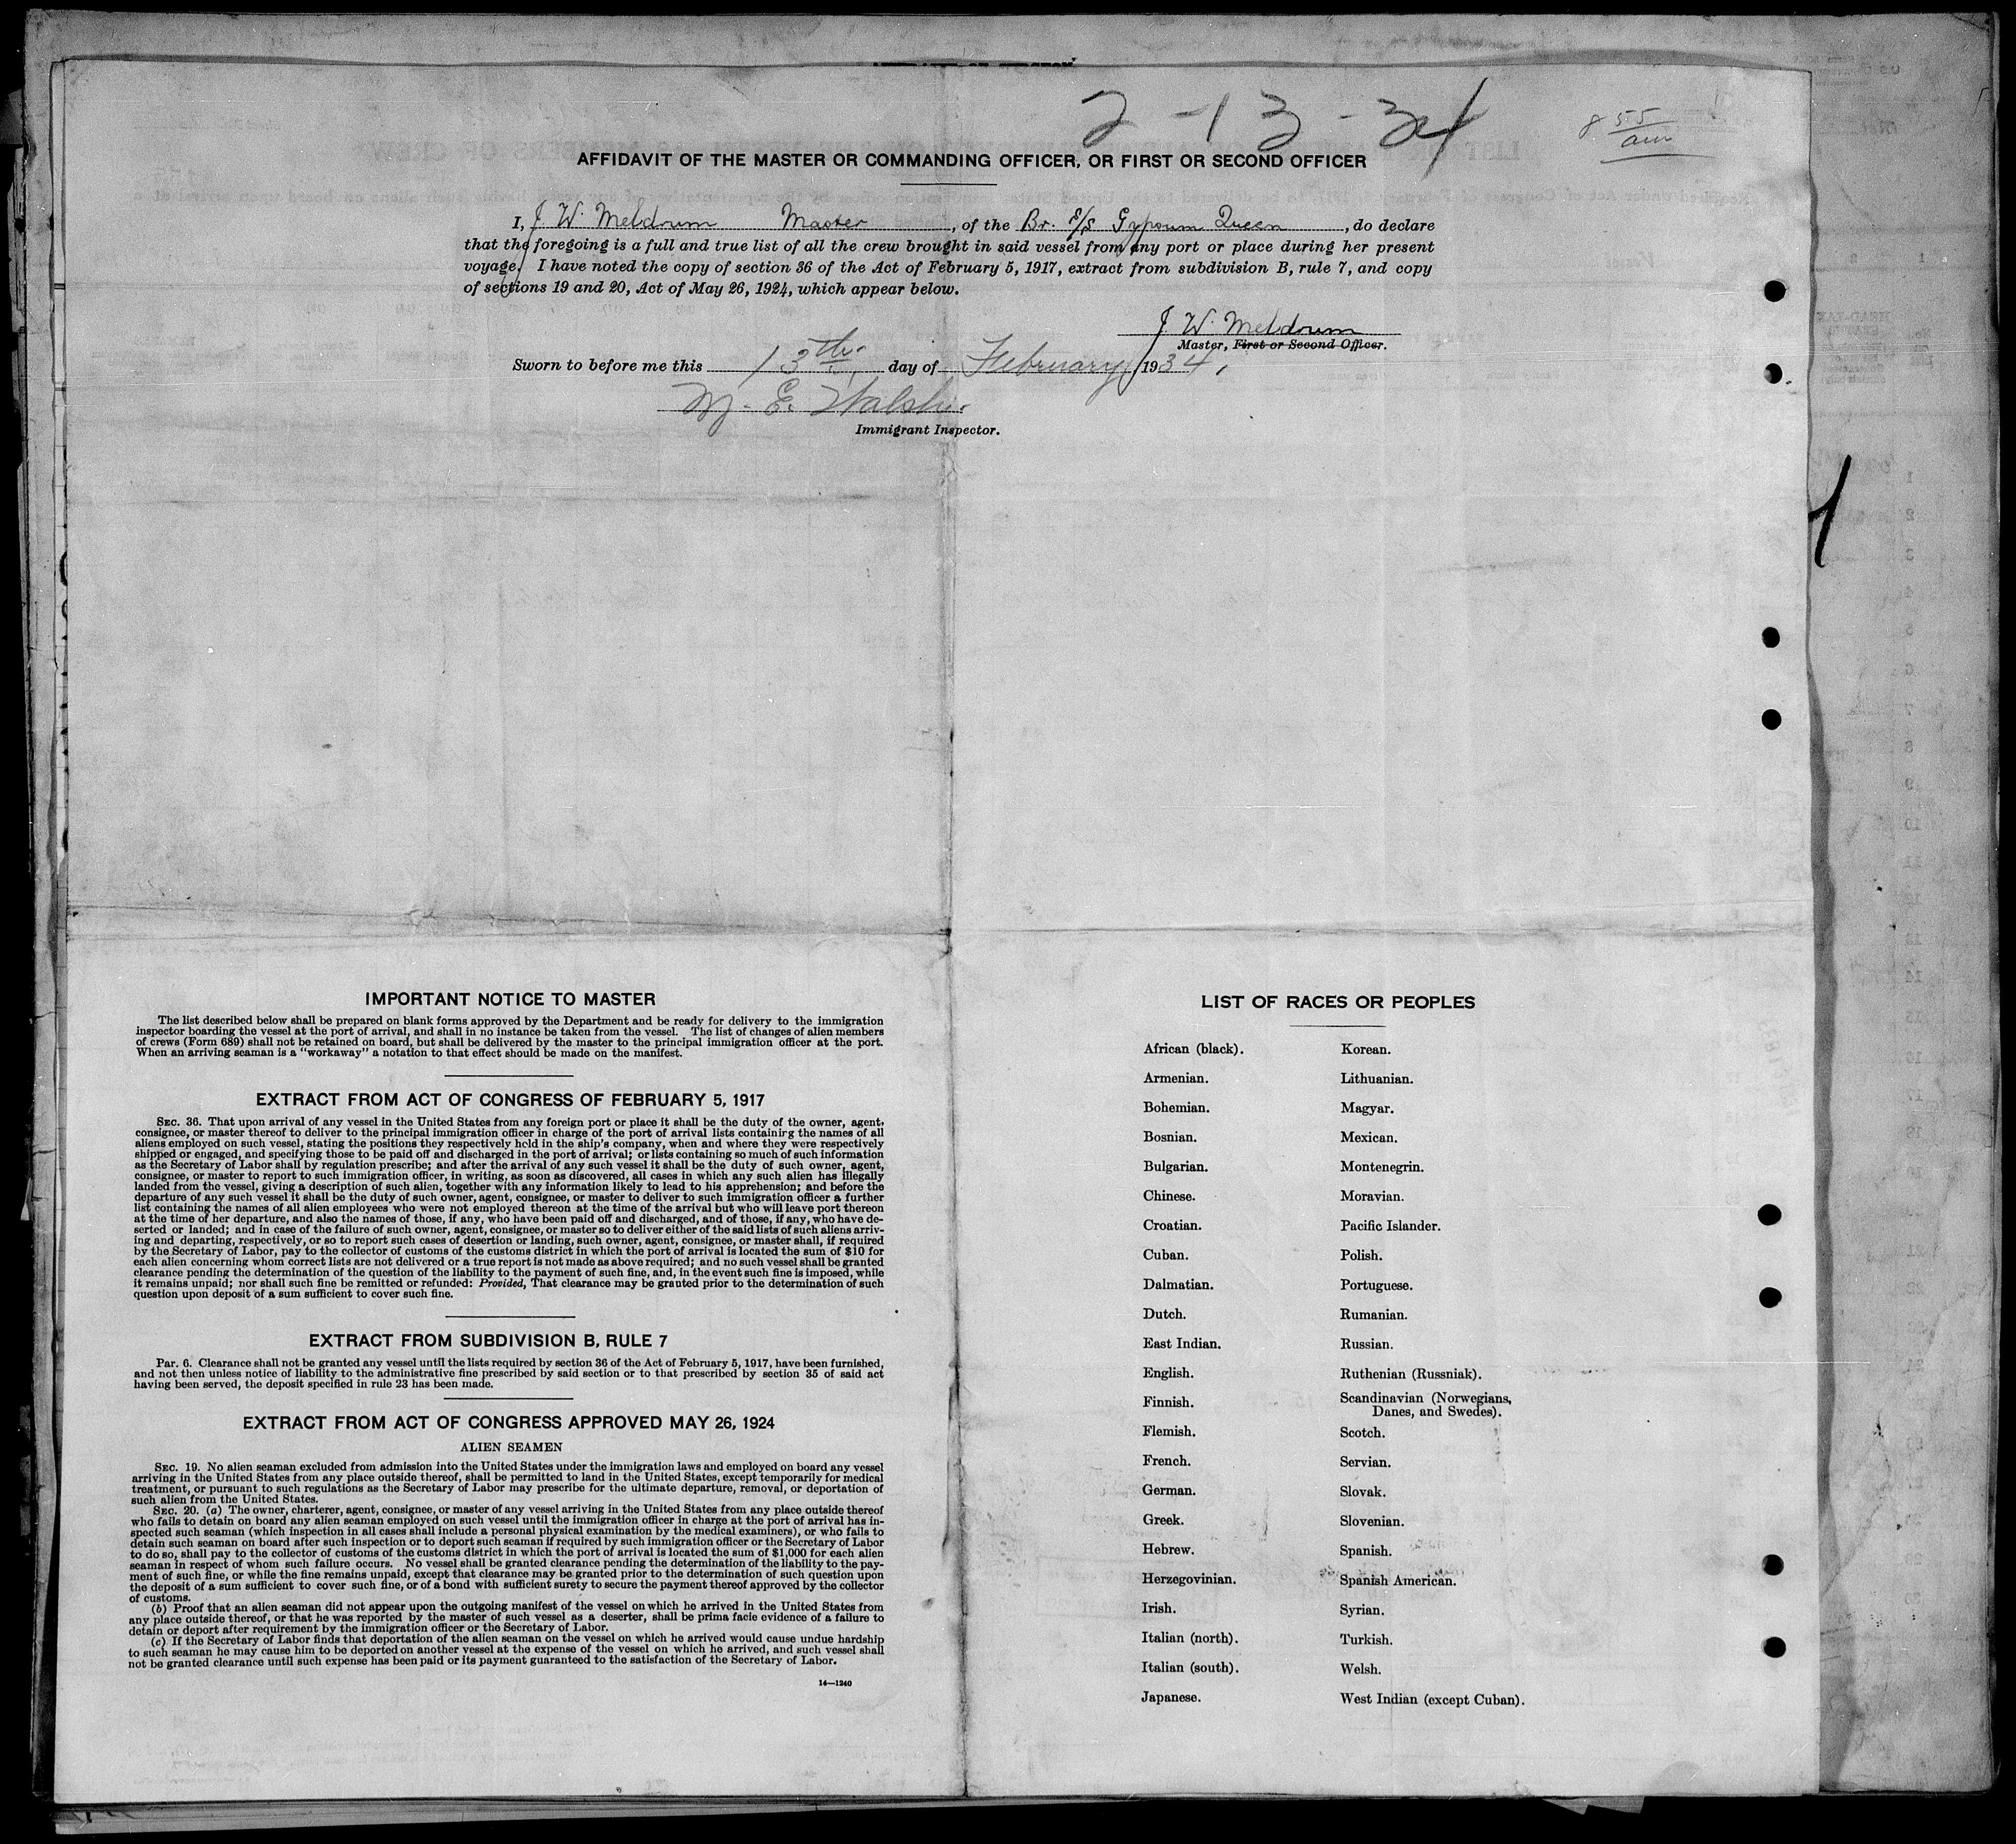 2-13-34
8 55 am
AFFIDAVIT OF THE MASTER OR COMMANDING OFFICER, OR FIRST OR SECOND OFFICER
I, J. W. Meldrum Master, of the Br. S/S Gypsum Queen, do declare
that the foregoing is a full and true list of all the crew brought in said vessel from any port or place during her present
voyage. I have noted the copy of section 36 of the Act of February 5, 1917, extract from subdivision B, rule 7, and copy
of sections 19 and 20, Act of May 26, 1924, which appear below.
J. W. Meldrum
Master, First or Second Officer.
Sworn to before me this 13th day of February, 1934.
M. E. Walsh
Immigrant Inspector.
IMPORTANT NOTICE TO MASTER
The list described below shall be prepared on blank forms approved by the Department and be ready for delivery to the immigration
inspector boarding the vessel at the port of arrival, and shall in no instance be taken from the vessel. The list of changes of alien members
of crews (Form 689) shall not be retained on board, but shall be delivered by the master to the principal immigration officer at the port.
When an arriving seaman is a "workaway" a notation to that effect should be made on the manifest.
EXTRACT FROM ACT OF CONGRESS OF FEBRUARY 5, 1917
SEC. 36. That upon arrival of any vessel in the United States from any foreign port or place it shall be the duty of the owner, agent,
consignee, or master thereof to deliver to the principal immigration officer in charge of the port of arrival lists containing the names of all
aliens employed on such vessel, stating the positions they respectively held in the ship's company, when and where they were respectively
shipped or engaged, and specifying those to be paid off and discharged in the port of arrival; or lists containing so much of such information
as the Secretary of Labor shall by regulation prescribe; and after the arrival of any such vessel it shall be the duty of such owner, agent,
consignee, or master to report to such immigration officer, in writing, as soon as discovered, all cases in which any such alien has illegally
landed from the vessel, giving a description of such alien, together with any information likely to lead to his apprehension; and before the
departure of any such vessel it shall be the duty of such owner, agent, consignee, or master to deliver to such immigration officer a further
list containing the names of all alien employees who were not employed thereon at the time of the arrival but who will leave port thereon
at the time of her departure, and also the names of those, if any, who have been paid off and discharged, and of those, if any, who have de-
serted or landed; and in case of the failure of such owner, agent, consignee, or master so to deliver either of the said lists of such aliens arriv-
ing and departing, respectively, or so to report such cases of desertion or landing, such owner, agent, consignee, or master shall, if required
by the Secretary of Labor, pay to the collector of customs of the customs district in which the port of arrival is located the sum of $10 for
each alien concerning whom correct lists are not delivered or a true report is not made as above required; and no such vessel shall be granted
clearance pending the determination of the question of the liability to the payment of such fine, and, in the event such fine is imposed, while
it remains unpaid; nor shall such fine be remitted or refunded: Provided, That clearance may be granted prior to the determination of such
question upon deposit of a sum sufficient to cover such fine.
EXTRACT FROM SUBDIVISION B, RULE 7
Par. 6. Clearance shall not be granted any vessel until the lists required by section 36 of the Act of February 5, 1917, have been furnished,
and not then unless notice of liability to the administrative fine prescribed by said section or to that prescribed by section 35 of said act
having been served, the deposit specified in rule 23 has been made.
EXTRACT FROM ACT OF CONGRESS APPROVED MAY 26, 1924
ALIEN SEAMEN
SEC. 19. No alien seaman excluded from admission into the United States under the immigration laws and employed on board any vessel
arriving in the United States from any place outside thereof, shall be permitted to land in the United States, except temporarily for medical
treatment, or pursuant to such regulations as the Secretary of Labor may prescribe for the ultimate departure, removal, or deportation of
such alien from the United States.
SEC. 20. (a) The owner, charterer, agent, consignee, or master of any vessel arriving in the United States from any place outside thereof
who fails to detain on board any alien seaman employed on such vessel until the immigration officer in charge at the port of arrival has in-
spected such seaman (which inspection in all cases shall include a personal physical examination by the medical examiners), or who fails to
detain such seaman on board after such inspection or to deport such seaman if required by such immigration officer or the Secretary of Labor
to do so, shall pay to the collector of customs of the customs district in which the port of arrival is located the sum of $1,000 for each alien
seaman in respect of whom such failure occurs. No vessel shall be granted clearance pending the determination of the liability to the pay-
ment of such fine, or while the fine remains unpaid, except that clearance may be granted prior to the determination of such question upon
the deposit of a sum sufficient to cover such fine, or of a bond with sufficient surety to secure the payment thereof approved by the collector
of customs.
(b) Proof that an alien seaman did not appear upon the outgoing manifest of the vessel on which he arrived in the United States from
any place outside thereof, or that he was reported by the master of such vessel as a deserter, shall be prima facie evidence of a failure to
detain or deport after requirement by the immigration officer or the Secretary of Labor.
(c) If the Secretary of Labor finds that deportation of the alien seaman on the vessel on which he arrived would cause undue hardship
to such seaman he may cause him to be deported on another vessel at the expense of the vessel on which he arrived, and such vessel shall
not be granted clearance until such expense has been paid or its payment guaranteed to the satisfaction of the Secretary of Labor.
14—1240
LIST OF RACES OR PEOPLES
African (black).
Armenian.
Bohemian.
Bosnian.
Bulgarian.
Chinese.
Croatian.
Cuban.
Dalmatian.
Dutch.
East Indian.
English.
Finnish.
Flemish.
French.
German.
Greek.
Hebrew.
Herzegovinian.
Irish.
Italian (north).
Italian (south).
Japanese.
Korean.
Lithuanian.
Magyar.
Mexican.
Montenegrin.
Moravian.
Pacific Islander.
Polish.
Portuguese.
Rumanian.
Russian.
Ruthenian (Russniak).
Scandinavian (Norwegians,
Danes, and Swedes).
Scotch.
Servian.
Slovak.
Slovenian.
Spanish.
Spanish American.
Syrian.
Turkish.
Welsh.
West Indian (except Cuban).